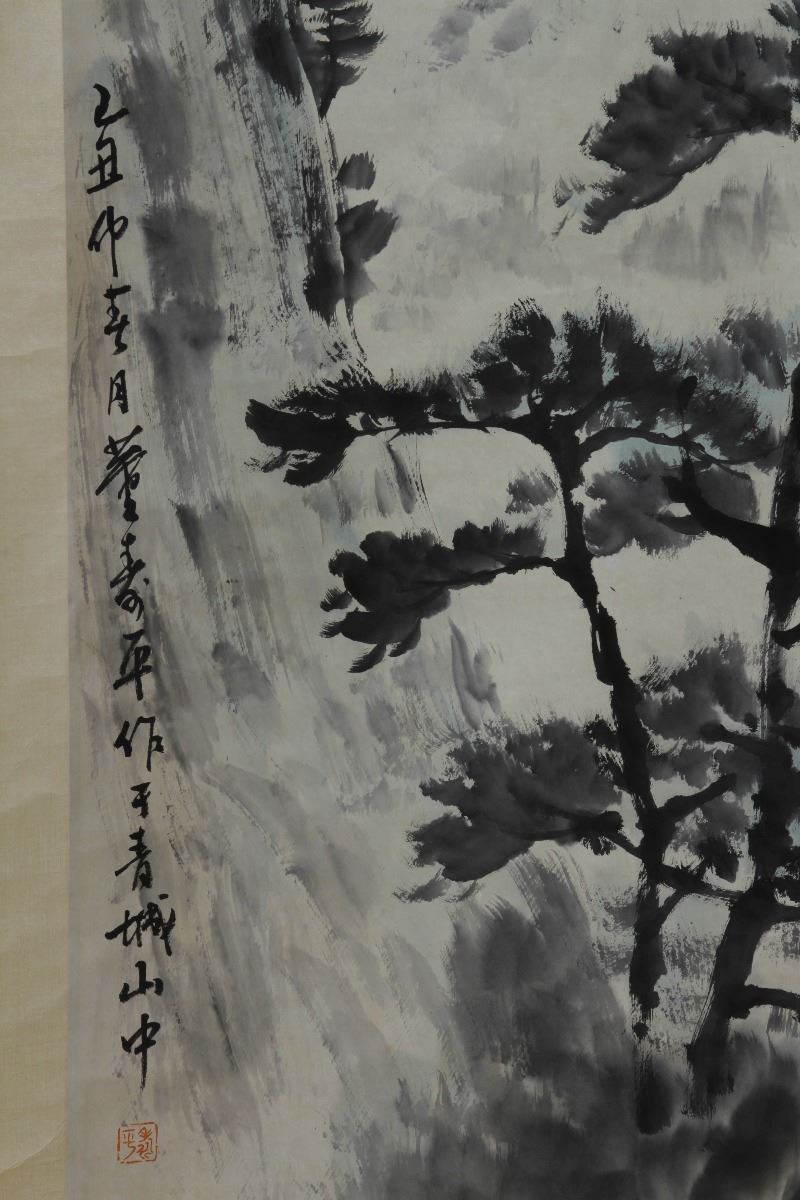 乙丑仲春月董寿平作于青城山中